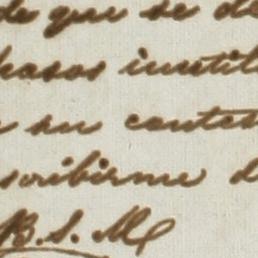 de que se de
pasos inutil
su contes
scribirme d
B. S. M